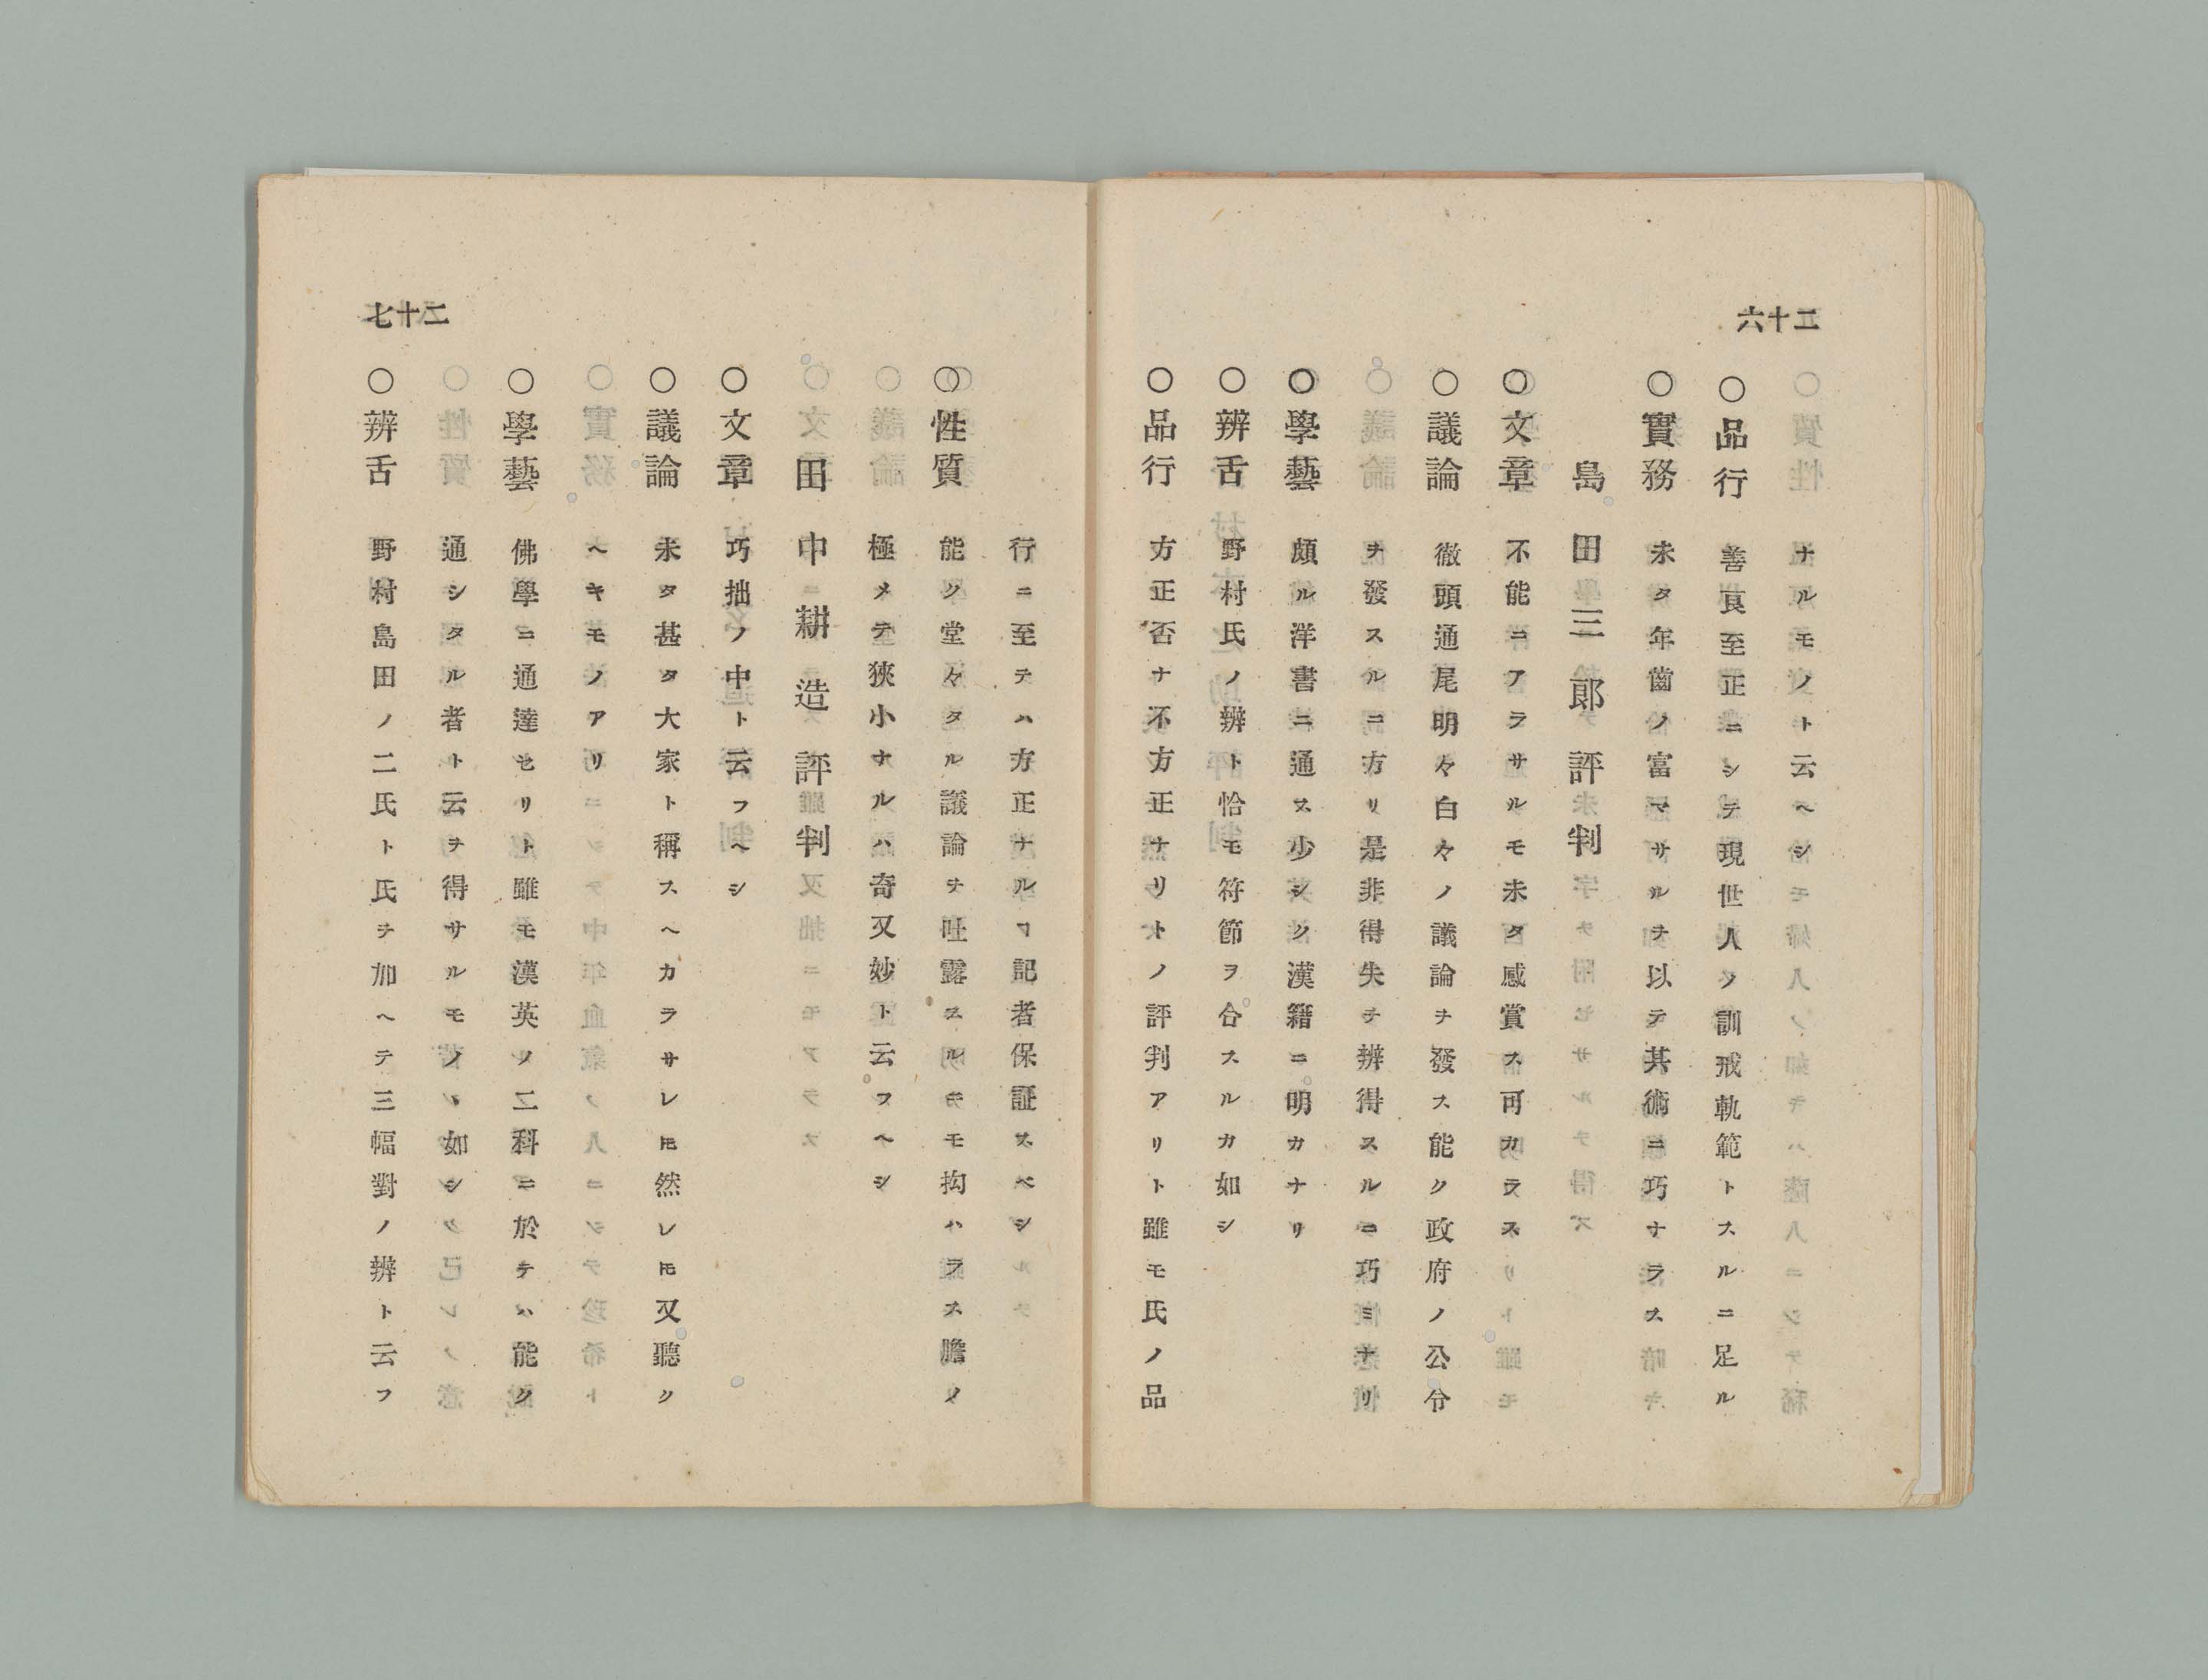 二十六
ナルモノト云ヘシ
○品行 善良至正ニシテ現世人ノ訓戒軌範トスルニ足ル
○實務 未タ年齒ノ富マサルヲ以テ其術ニ巧ナラス
島田三郎評判
○文章 不能ニアラサルモ未タ感賞ス可カラス
○議論 徹頭通尾明々白々ノ議論ヲ發ス能ク政府ノ公介
ヲ發スルニ方リ是非得失ヲ辨得スルニ巧ミナリ
○學藝 頗ル洋書ニ通ス少シク漢籍ニ明カナリ
○辨舌 野村氏ノ辨ト恰モ符節ヲ合スルカ如シ
○品行 方正否ナ不方正ナリトノ評判アリト雖モ氏ノ品
二十七
行ニ至テハ方正ナルヿ記者保証スベシ
○性質 能ク堂々タル議論ヲ吐露スルニモ拘ハラス膽ノ
極メテ狹小ナルハ奇又妙ト云フヘシ
田中耕造評判
○文章 巧拙ノ中ト云フヘシ
○議論 未タ甚タ大家ト稱スヘカラサレ𪜈然レ𪜈又聽ク
ヘキモノアリ
○學藝 佛學ニ通達セリト雖モ漢英ノ二科ニ於テハ能ク
通シタル者ト云ヲ得サルモノヽ如シ
○辨舌 野村島田ノ二氏ト氏ヲ加ヘテ三幅對ノ辨ト云フ